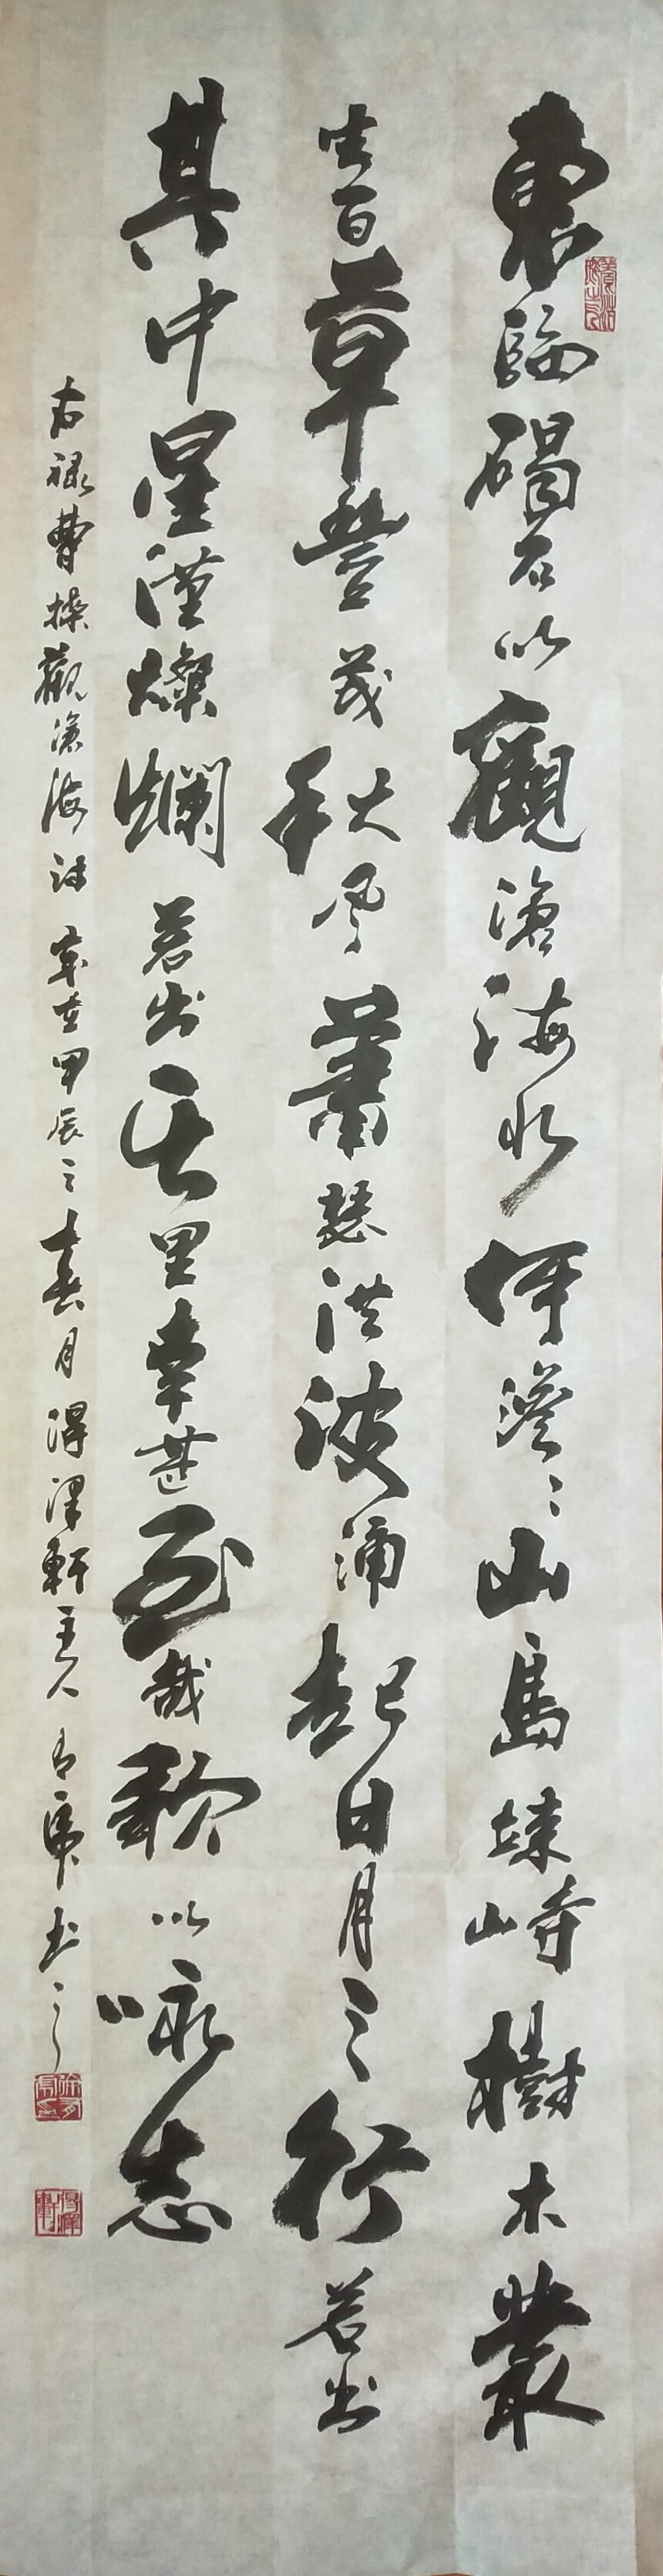 東臨碣石以觀滄海水何澹〻山島竦峙樹木叢
生百草豐茂秋風蕭瑟洪波涌起日月之行若出
其中星漢燦爛若出其里幸甚至哉歌以咏志
右禄曹操觀滄海詩 歲在甲辰之春月 得澤軒主人 有虎書之